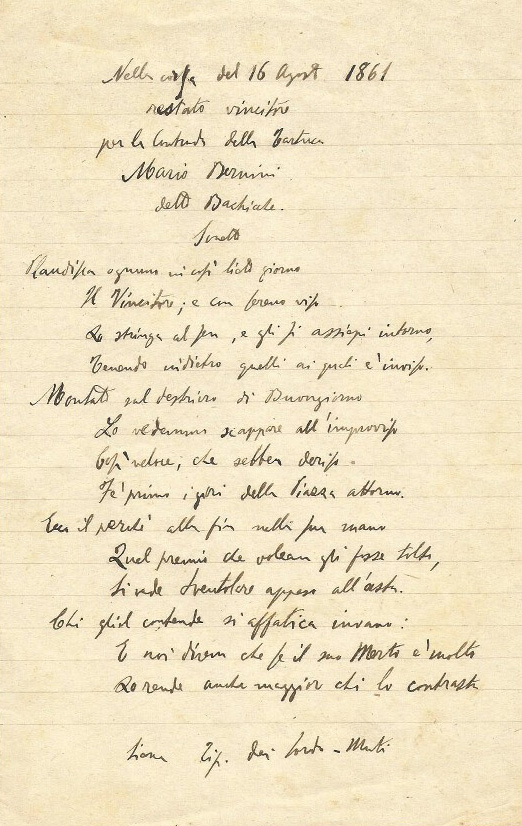 Nella corsa del 16 Agost 1861
restato vincitore
per la Contrada della Tartuca
Mario Bernini
detto Bachicche.
Sonetto
Plaudisca ognuno in così lieto giorno
Il Vincitore; e con sereno viso
Lo stringa al sen, e gli si assiepi intorno,
Tenendo indietro quelli ai quali è inviso.
Montato sul destriero di Buongiorno
Lo vedemmo scappare all'improvviso
Così veloce, che sebben deriso
Fé primo i giri della Piazza attorno.
Ecco il perché alla fin nella sua mano
Quel premio che volean gli fosse tolto,
Si vede sventolare appeso all'asta.
Chi gliel contende si affatica invano:
E noi direm che se il suo Merto è molto
Lo rende anche maggior chi lo contrasta
Siena Tip. dei Sordo-Muti